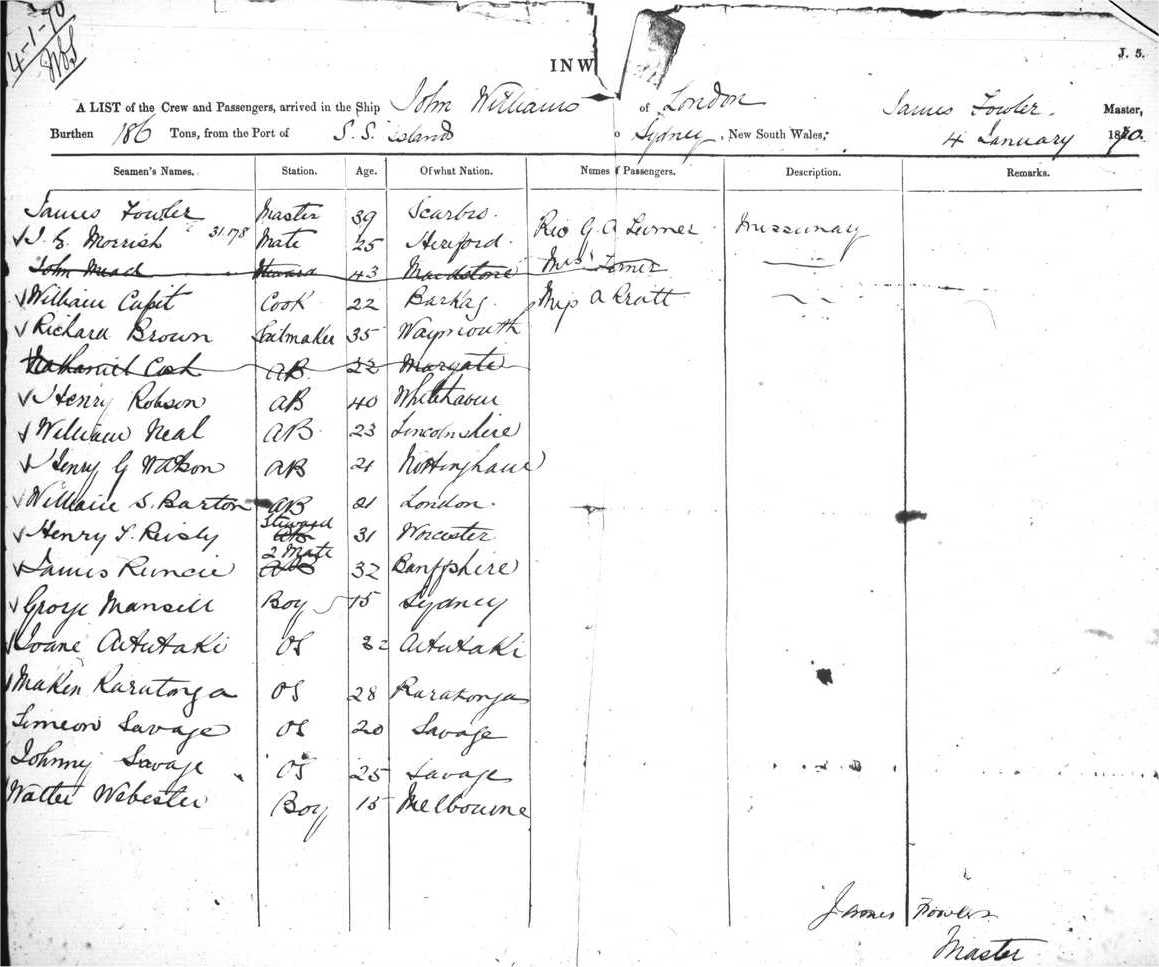 4-1-70
WbS
J. 5.
INW
A LIST of the Crew and Passengers, arrived in the Ship John Williams of London James Fowler. Master,
Burthen 186 Tons, from the Port of S. S. Islands o Sydney, New South Wales, 4 January 1870.
Seamen's Names. Station. Age. Of what Nation. Names of Passengers. Description. Remarks.
James Fowler Master 39 Scarbro. Rev G. A Turner Missionary
J. E. Morrish 31.178 Mate 25 Hereford. Mrs Turner
John Mead Steward 43 Maidstone
William Capit Cook 22 Barkng. A Pratt
Richard Brown Sailmaker 35 Waymouth
Nathaniel Cook AB 22 Margate
Henry Robson AB 40 Whitehaven
William Neal AB 23 Lincolnshire
Henry G Watson AB 21 Nottingham
William S. Barton AB 21 London.
Henry T. Risly Steward AB 31 Worcester
James Runcie 2 Mate AB 32 Banffshire
George Mansell Boy 15 Sydney
Ioane Aitutaki OS 32 Aitutaki
Maken Raratonga OS 28 Raratonga
Simeon Savage OS 20 Savage
Johnny Savage OS 25 Savage
Walter Webester Boy 15 Melbourne
James Fowler
Master